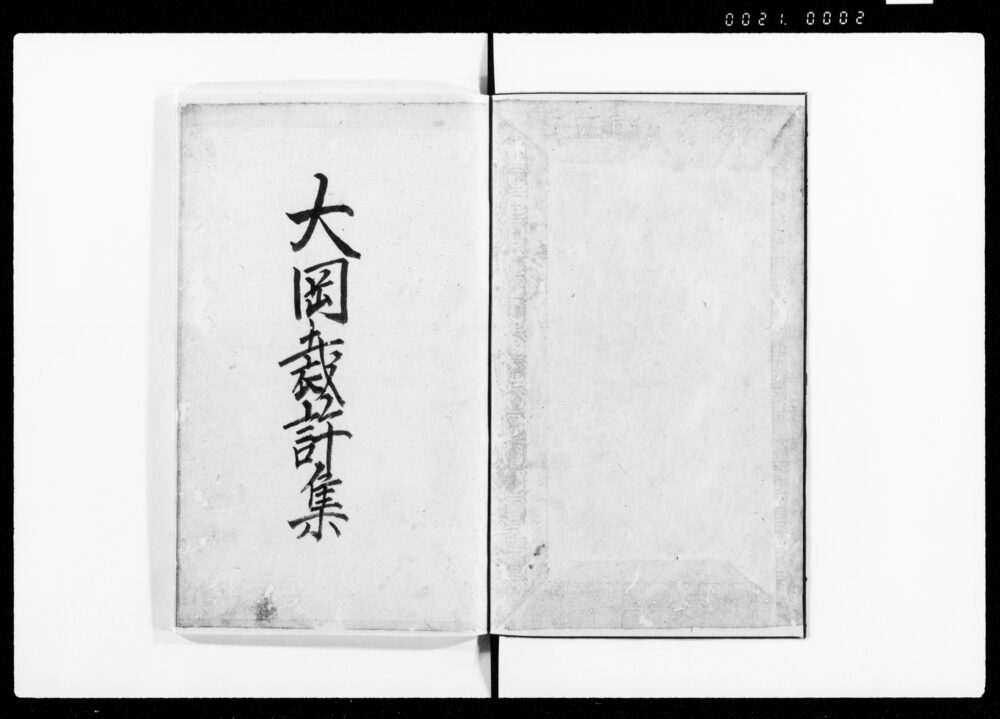 0021. 0002
大岡裁許集